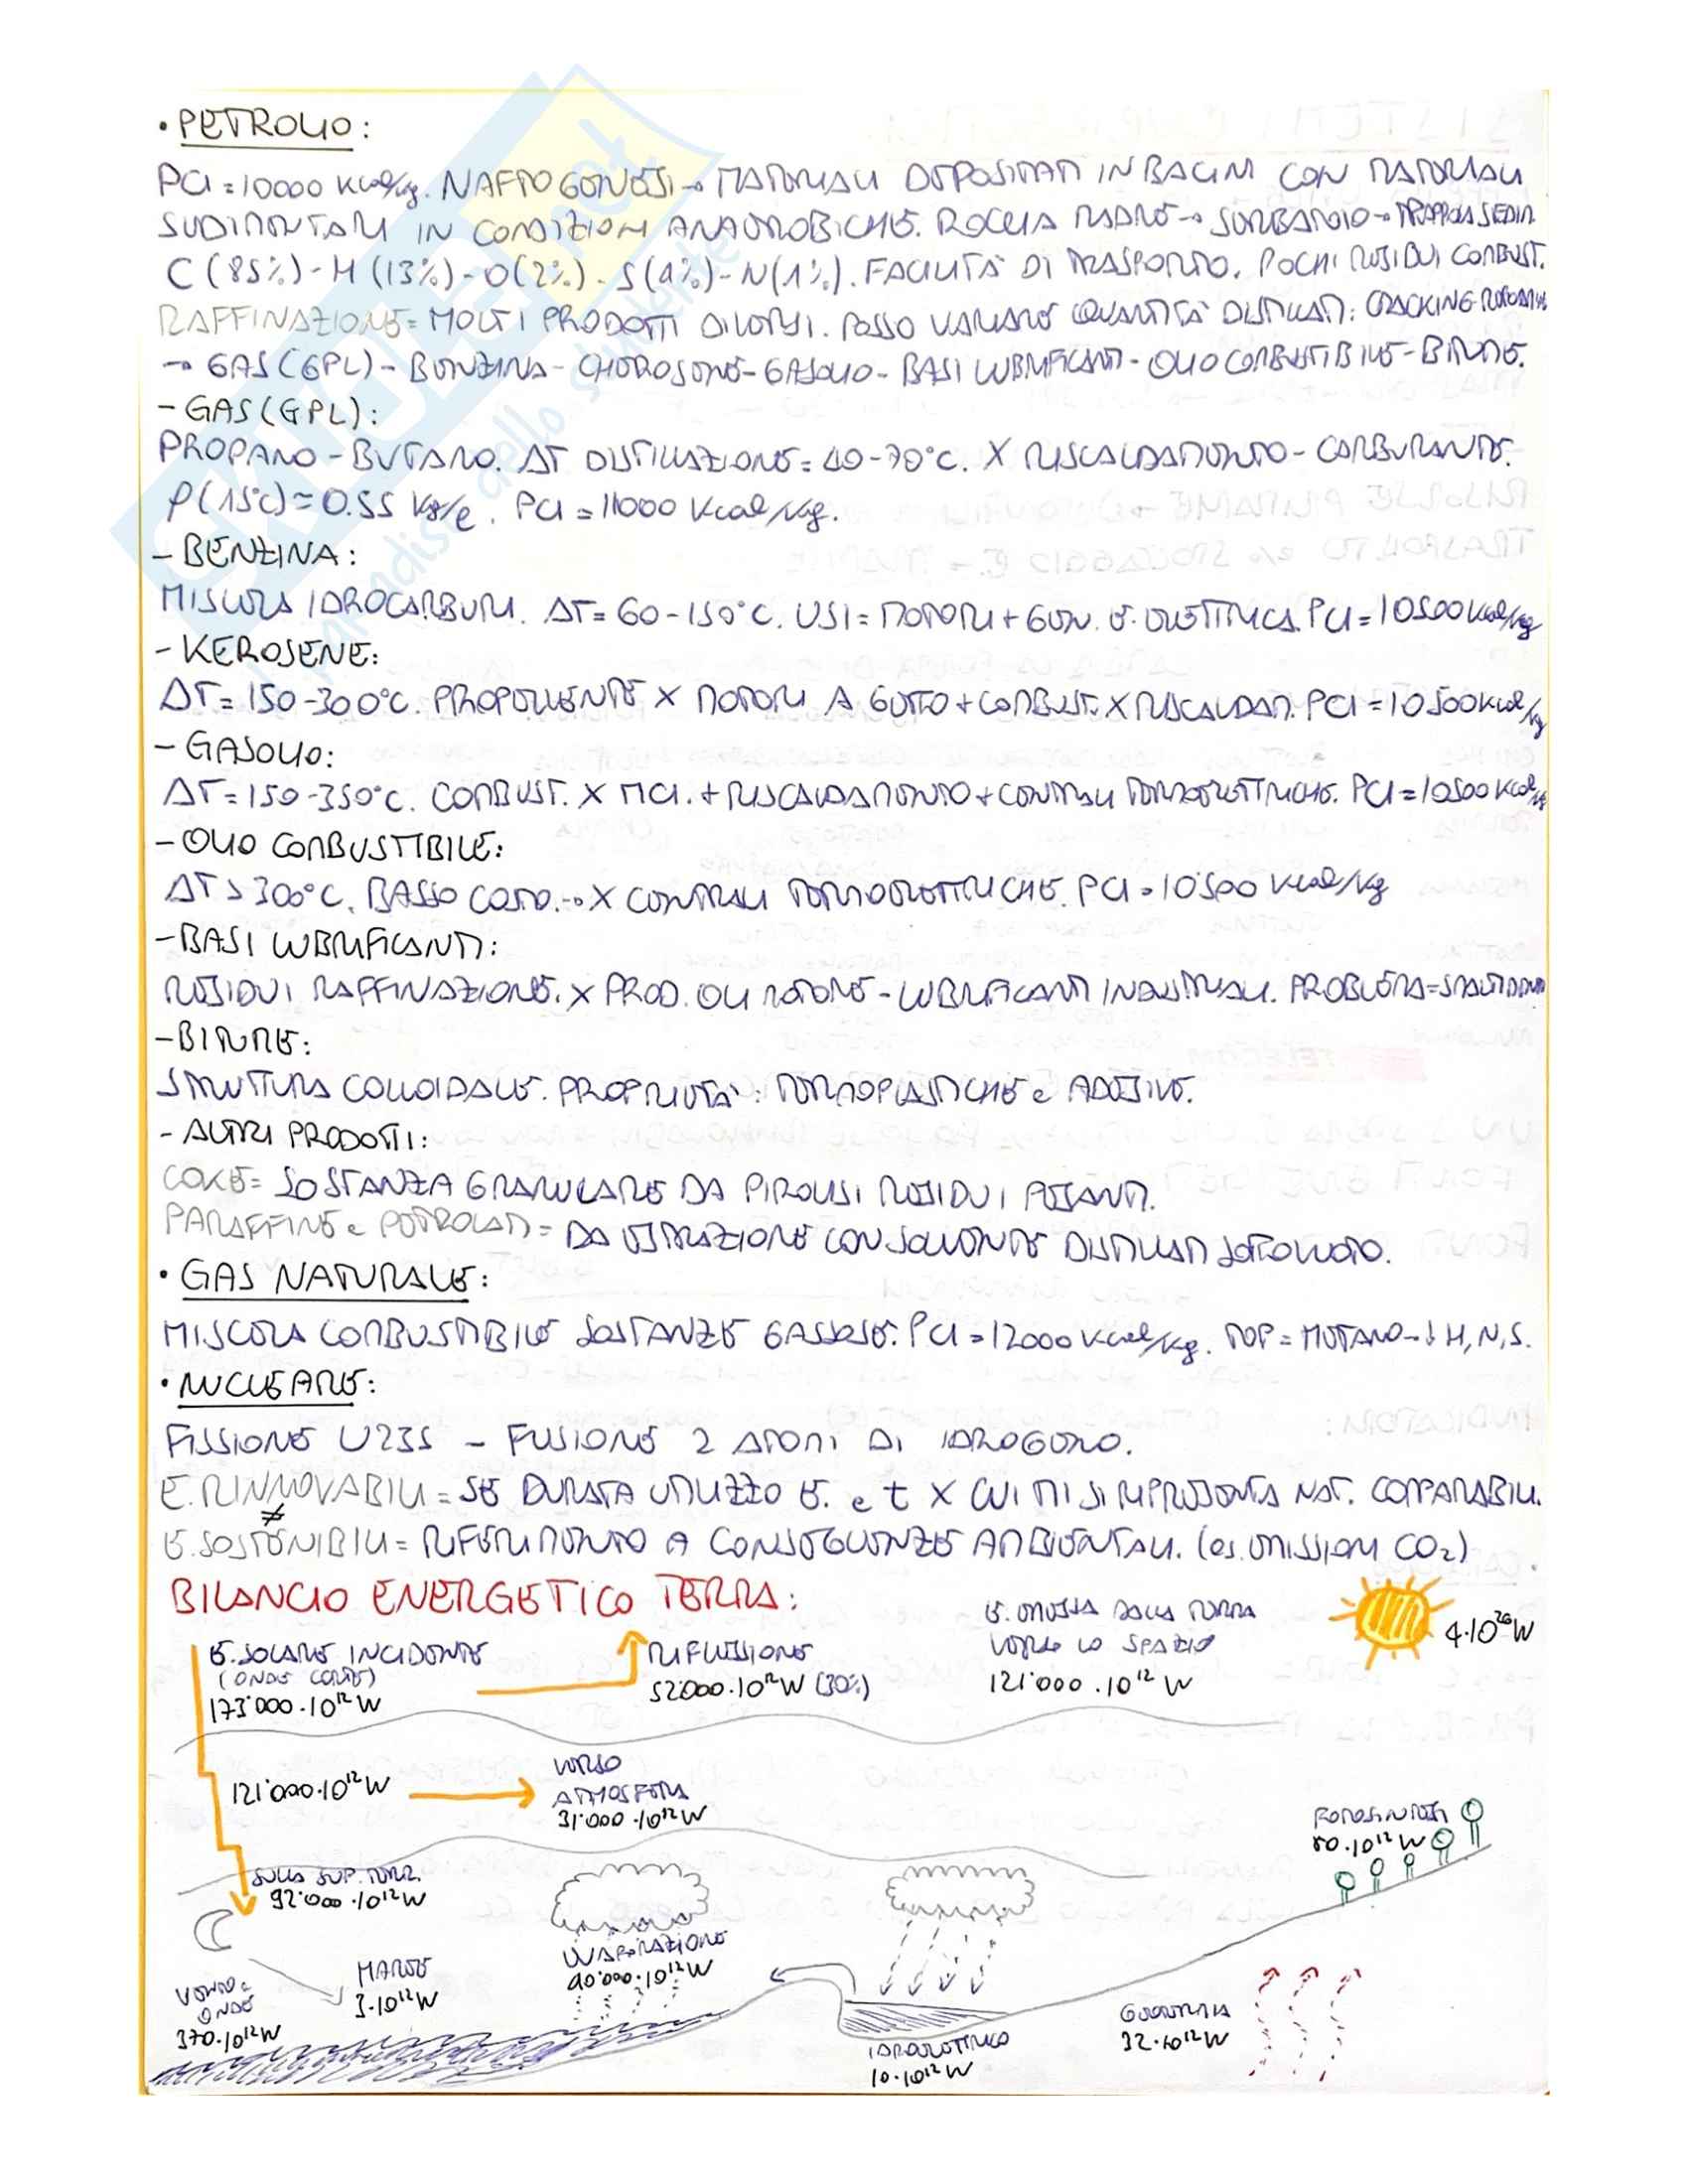 • PETROLIO:
PCI = 10000 Kcal/Kg. NAFTOGENESI → MATERIALI DEPOSITATI IN BACINI CON MATERIALI
SEDIMENTARI IN CONDIZIONI ANAEROBICHE. ROCCIA MADRE → SERBATOIO → TRAPPOLA SEDIM.
C (85%) - H (13%) - O (2%) - S (1%) - N (1%). FACILITÀ DI TRASPORTO. POCHI RESIDUI COMBUST.
RAFFINAZIONE = MOLTI PRODOTTI DIVERSI. POSSO VARIARE QUANTITÀ DISTILLATI: CRACKING-REFORMING
→ GAS (GPL) - BENZINA - CHEROSENE - GASOLIO - BASI LUBRIFICANTI - OLIO COMBUSTIBILE - BITUME.
- GAS (GPL):
PROPANO - BUTANO. ΔT DISTILLAZIONE = 40-70°C. X RISCALDAMENTO - CARBURANTE.
ρ(15°C) ≈ 0.55 Kg/l. PCI = 11000 Kcal/Kg.
- BENZINA:
MISCELA IDROCARBURI. ΔT = 60-150°C. USI = MOTORI + GEN. E. ELETTRICA. PCI = 10500 Kcal/Kg
- KEROSENE:
ΔT = 150-300°C. PROPELLENTE X MOTORI A GETTO + COMBUST. X RISCALDAM. PCI = 10500 Kcal/Kg
- GASOLIO:
ΔT = 150-350°C. COMBUST. X MCI. + RISCALDAMENTO + CENTRALI TERMOELETTRICHE. PCI = 10500 Kcal/Kg
- OLIO COMBUSTIBILE:
ΔT > 300°C. BASSO COSTO. → X CENTRALI TERMOELETTRICHE. PCI = 10500 Kcal/Kg
- BASI LUBRIFICANTI:
RESIDUI RAFFINAZIONE. X PROD. OLI MOTORE - LUBRIFICANTI INDUSTRIALI. PROBLEMA = SMALTIMENTO
- BITUME:
STRUTTURA COLLOIDALE. PROPRIETÀ: TERMOPLASTICHE e ADESIVE.
- ALTRI PRODOTTI:
COKE = SOSTANZA GRANULARE DA PIROLISI RESIDUI PESANTI.
PARAFFINE e PETROLATI = DA ESTRAZIONE CON SOLVENTE DISTILLATI SOTTOVUOTO.
• GAS NATURALE:
MISCELA COMBUSTIBILE SOSTANZE GASSOSE. PCI = 12000 Kcal/Kg. TOP = METANO - ↓ H, N, S.
• NUCLEARE:
FISSIONE U235 - FUSIONE 2 ATOMI DI IDROGENO.
E. RINNOVABILI = SE DURATA UTILIZZO E. e t X CUI MI SI RIPRESENTA NAT. COMPARABILI.
≠
E. SOSTENIBILI = RIFERIMENTO A CONSEGUENZE AMBIENTALI. (es. EMISSIONI CO₂)
BILANCIO ENERGETICO TERRA:
E. SOLARE INCIDENTE
(ONDE CORTE)
173'000·10¹² W
RIFLESSIONE
52'000·10¹² W (30%)
E. EMESSA DALLA TERRA
VERSO LO SPAZIO
121'000·10¹² W
4·10²⁶ W
121'000·10¹² W
VERSO
ATMOSFERA
31'000·10¹² W
FOTOSINTESI
80·10¹² W
SULLA SUP. TERR.
92'000·10¹² W
EVAPORAZIONE
40'000·10¹² W
MAREE
3·10¹² W
VENTO e
ONDE
370·10¹² W
IDROELETTRICO
10·10¹² W
GEOTERMIA
32·10¹² W